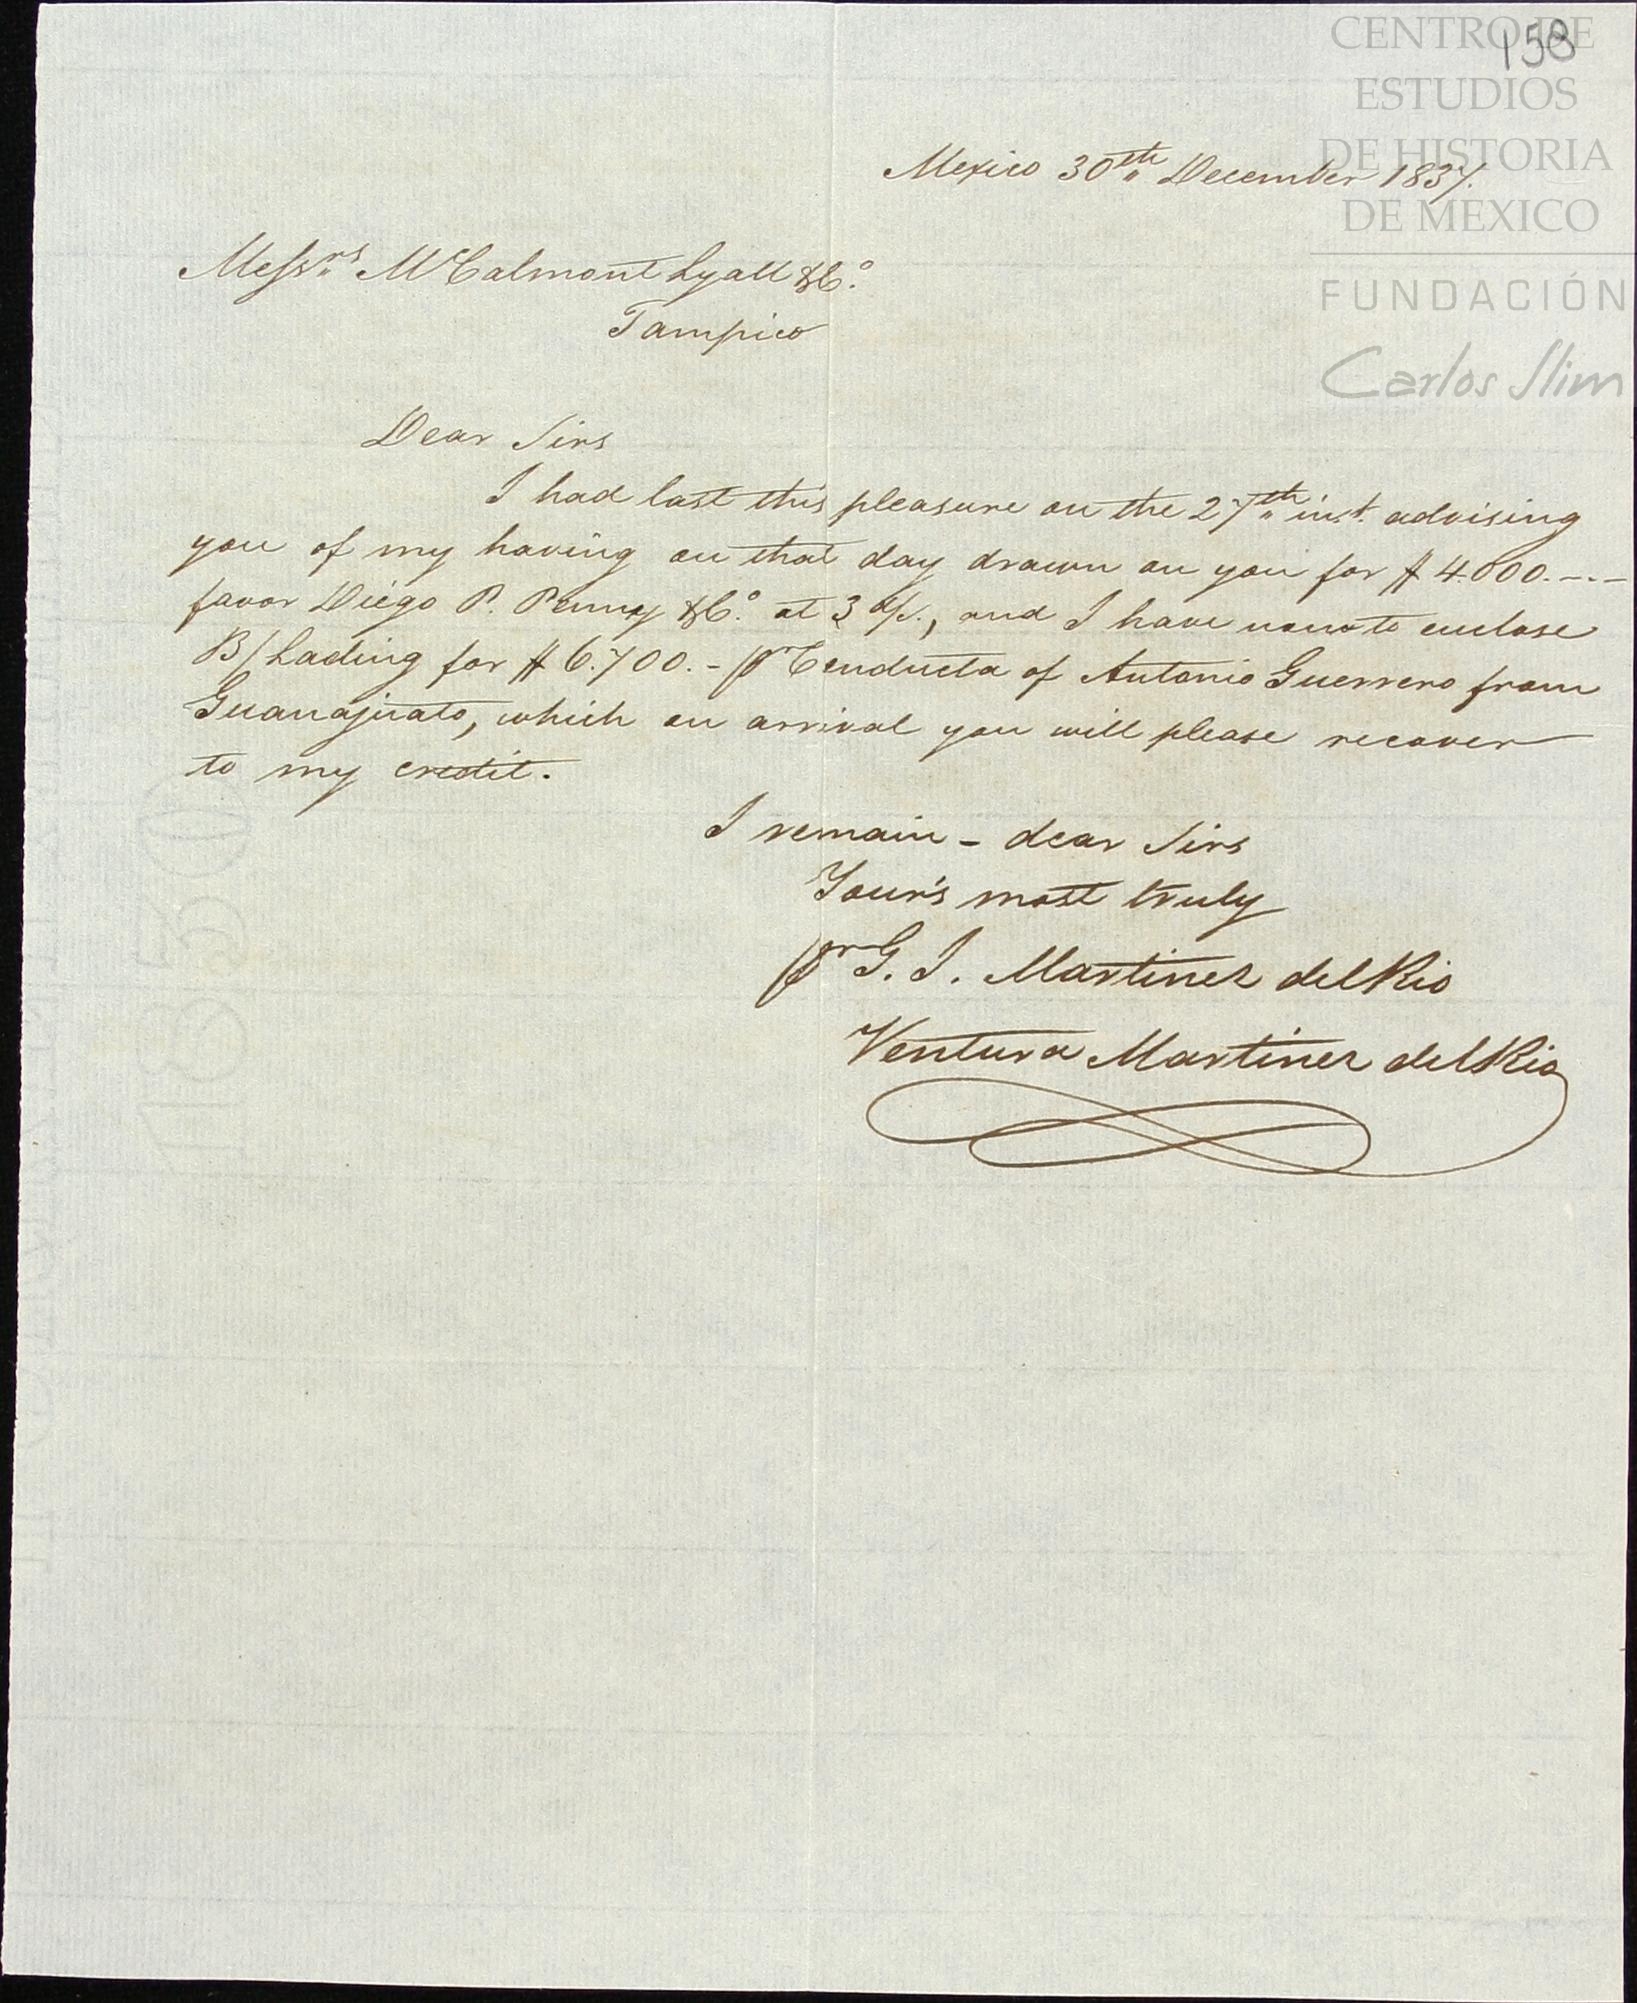 158
CENTRO DE
ESTUDIOS
DE HISTORIA
DE MEXICO
FUNDACIÓN
Carlos Slim
Mexico 30th December 1837.
Messrs McCalmont Lyall & Co.
Tampico
Dear Sirs
I had last this pleasure on the 27th inst. advising
you of my having on that day drawn on you for $ 4.000.---
favor Diego P. Penny & Co. at 3 d/s., and I have now to enclose
B/Lading for $ 6.700.- pr Conducta of Antonio Guerrero from
Guanajuato, which on arrival you will please recover
to my credit.
I remain - dear Sirs
Your's most truly
pr G. J. Martinez del Rio
Ventura Martinez del Rio